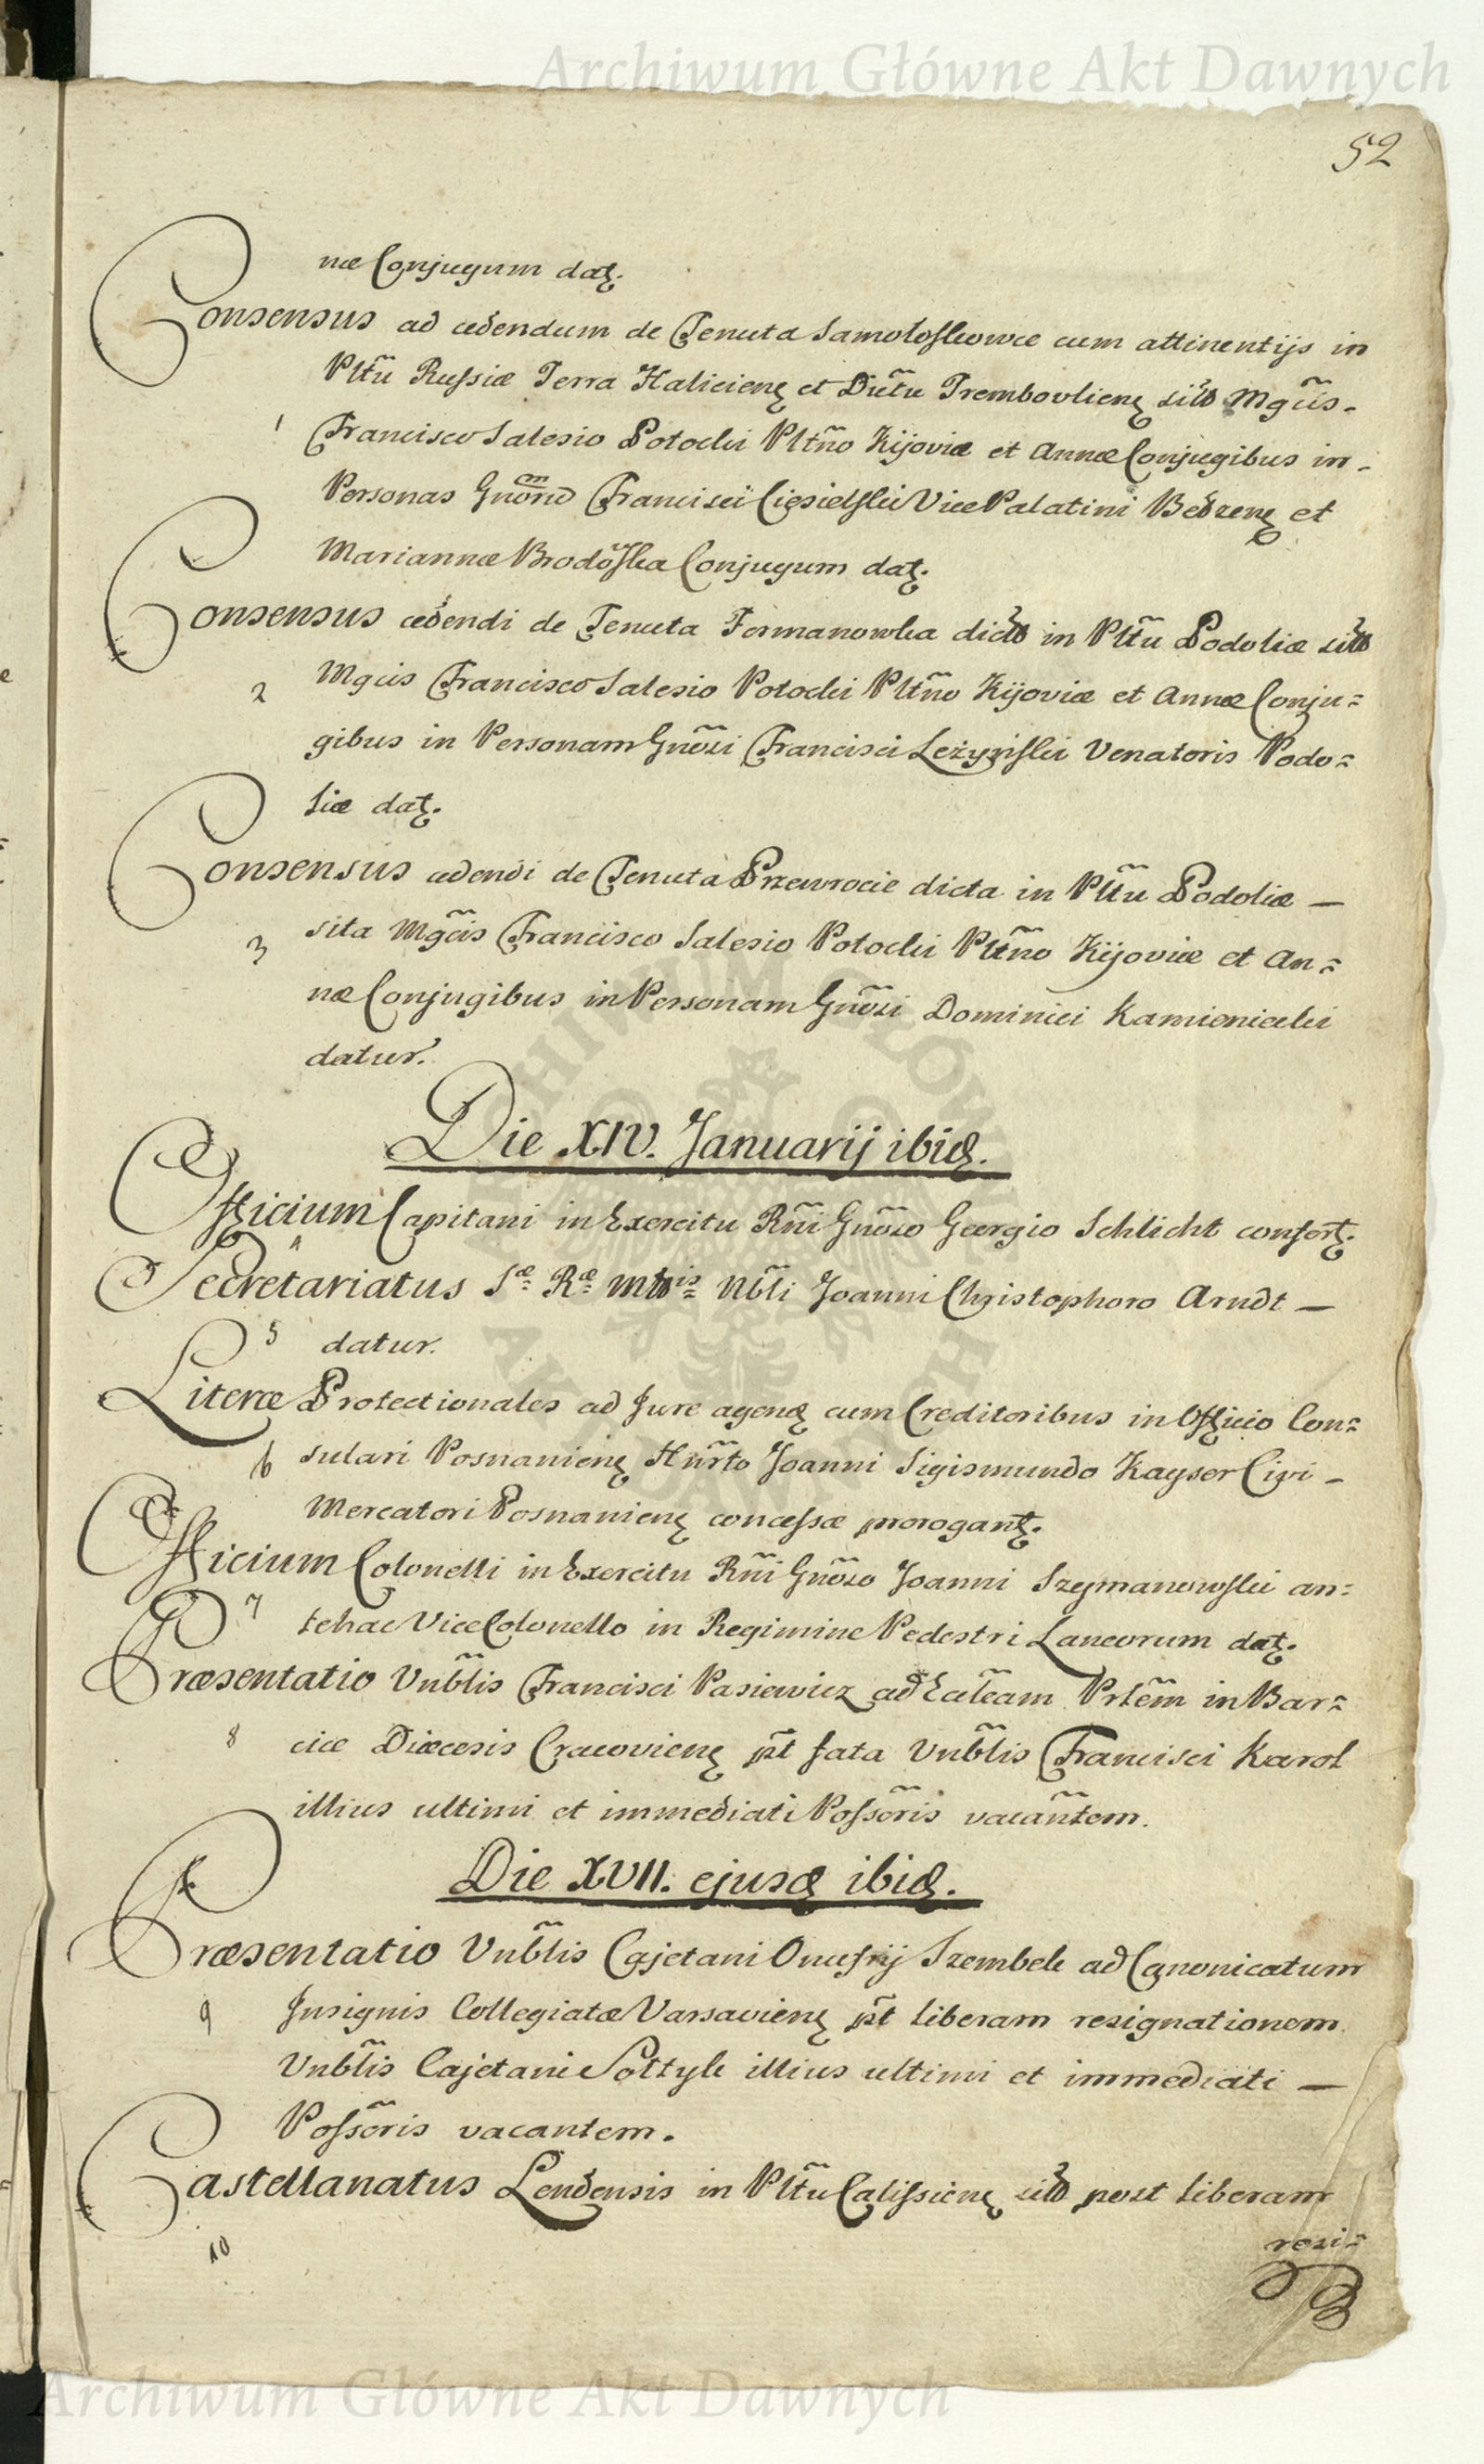 Archiwum Główne Akt Dawnych
52
næ Conjugum datꝫ.
Consensus ad cedendum de Tenuta Samotoskowce cum attinentijs in
Pltũ Russiæ Terra Halicienꝫ et Dictũ Trembovlienꝫ sitis Mgcis-
1 Francisco Salesio Potocki Pltño Kijoviæ et Annæ Conjugibus in-
Personas Gnõrũ Francisci Ciesielski Vice Palatini Bedzenꝫ et
Mariannæ Brodoska Conjugum datꝫ.
Consensus cedendi de Tenuta Fermanowka dicta in Pltũ Podoliæ sita
2 Mgcis Francisco Salesio Potocki Pltño Kijoviæ et Annæ Conju=
gibus in Personam Gnõsi Francisci Leżyński Venatoris Podo=
liæ datꝫ.
Consensus cedendi de Tenuta Przewrocie dicta in Pltũ Podoliæ —
3 sita Mgcis Francisco Salesio Potocki Pltño Kijoviæ et An=
næ Conjugibus in Personam Gnõsi Dominici Kamieniecki
datur.
Die XIV. Januarij ibid.
Officium Capitani in Exercitu Rñi Gnõso Georgio Schlicht confertꝫ.
4
Secretariatus Sæ Ræ Mttis Nbli Joanni Christophoro Arndt —
5 datur.
Literæ Protectionales ad Jure agendꝫ cum Creditoribus in Officio Con=
6 sulari Posnanienꝫ Hnrto Joanni Sigismundo Kayser Civi -
Mercatori Posnanienꝫ concessæ prorogantꝫ.
Officium Colonelli in Exercitu Rñi Gnõso Joanni Szymanowski an=
7 tehac Vice Colonello in Regimine Pedestri Laneorum datꝫ.
Præsentatio Vnblis Francisci Pasiewicz ad Ecclẽam Prlẽm in Bar=
8 cice Diæcesis Cracovienꝫ pt fata Vnblis Francisci Karol
illius ultimi et immediati Possõris vacañtem.
Die XVII. ejusd ibid.
Præsentatio Vnblis Cajetani Onufrij Szembek ad Canonicatum
9 Insignis Collegiatæ Varsavienꝫ pt liberam resignationem
Vnblis Cajetani Sołtyk illius ultimi et immediati —
Possõris vacantem.
Castellanatus Lendensis in Pltũ Calissienꝫ sita post liberam
10
resi=
Archiwum Główne Akt Dawnych